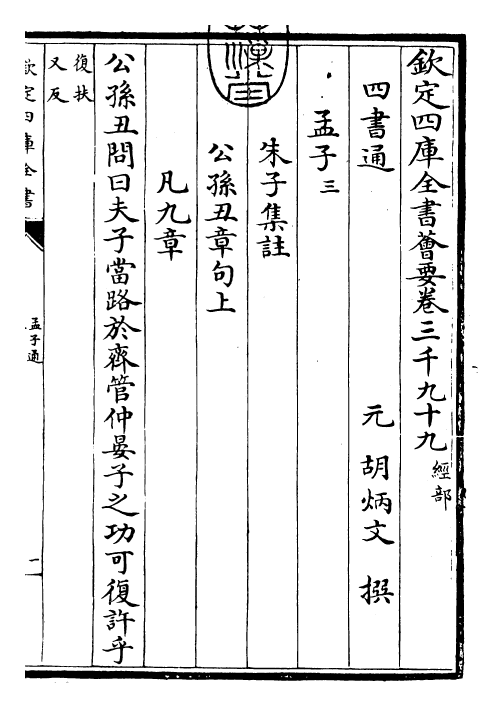 欽定四庫全書薈要卷三千九十九 經部
四書通 元 胡炳文 撰
孟子三
朱子集註
公孫丑章句上
凡九章
公孫丑問曰夫子當路於齊管仲晏子之功可復許乎
復扶
又反
欽定四庫全書
孟子通
一